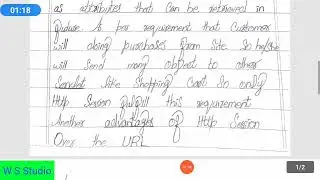 01:18
as attributes that can be retrieved in
future. As per requirement that customer
will doing purchases from site so he/she
will send many object to other
Servlet like shopping cart so only
Http Session fulfill this requirement
Another advantages of Http Session
Over the URL
1/2
W S Studio